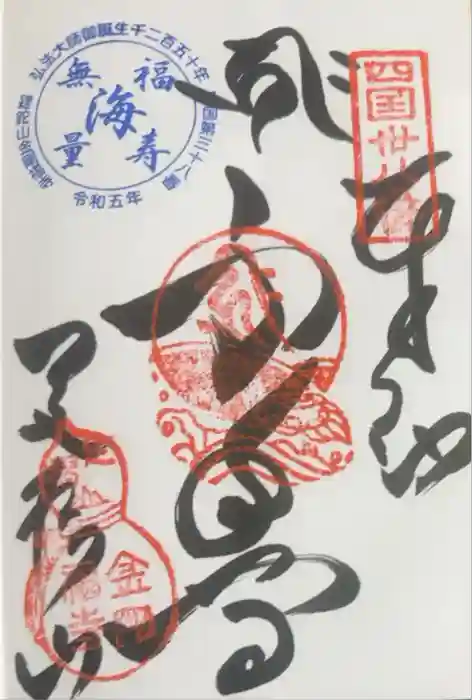 四国卅八番
奉納
弘法大師御誕生千二百五十年
四国第三十八番
蹉跎山金剛福寺
福寿
海
無量
令和五年
足摺山
金剛
福寺